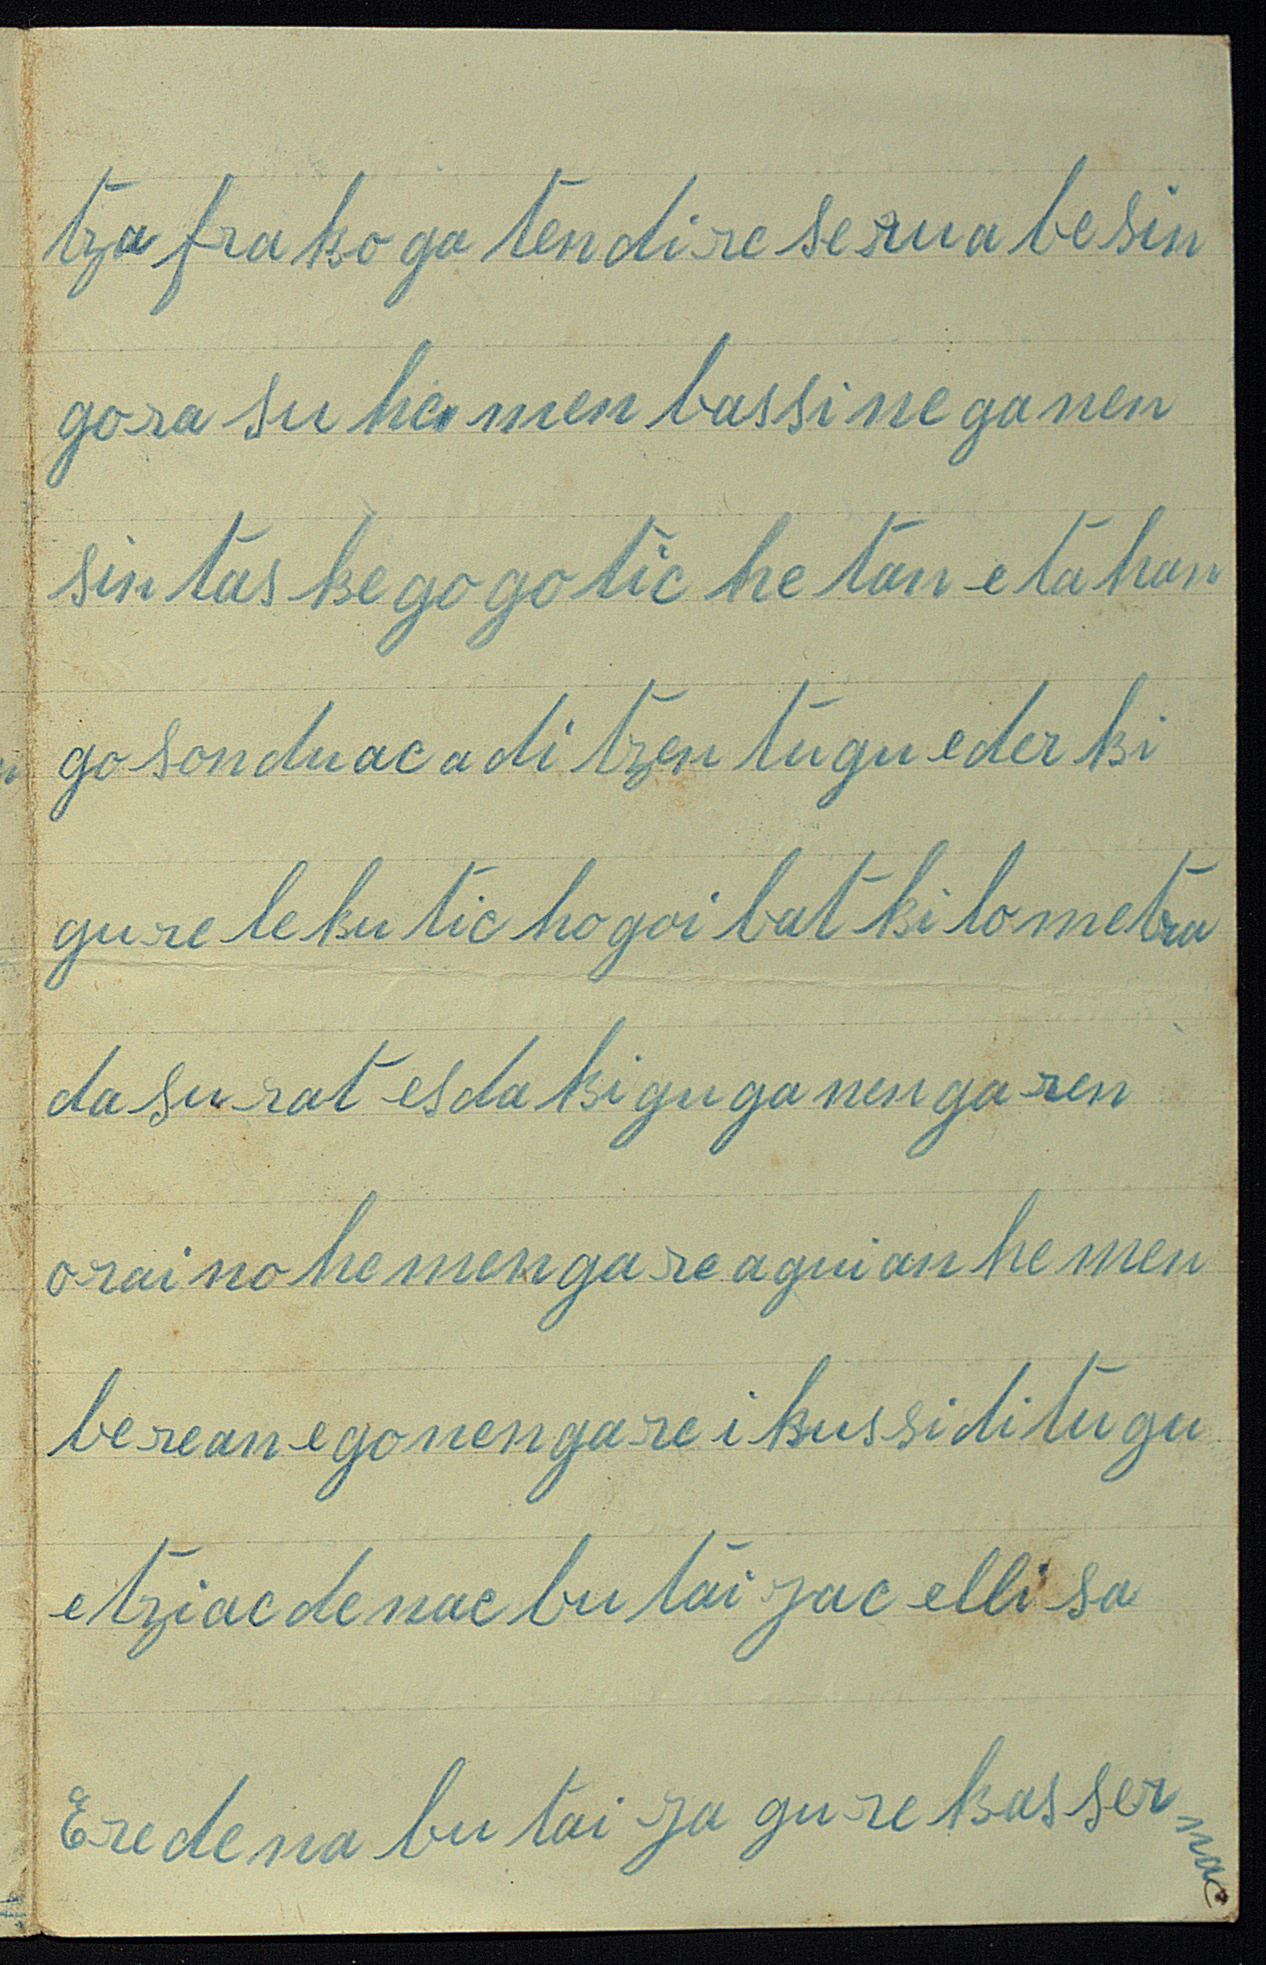 tza fra ko ga ten di re se rua be sin
go ra su he men bassi ne ga nen
sin tas ke go go tic he tan e ta han
go son du ac a di tzen tu gu eder ki
gu re le ku tic ho goi bat ki lo metra
da su rat es da ki gu ga nen ga ren
o rai no he men ga re a gui an he men
be re an e go nen ga re i kus si di tu gu
e tzi ac de nac bu tai zac elli sa
Ere de na bu tai za gu re kas ser nac